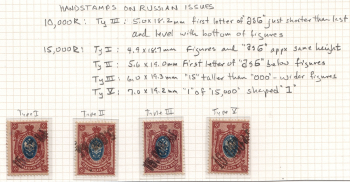 HANDSTAMPS ON RUSSIAN ISSUES
10,000R: Ty III: 5.0 x 18.2mm first letter of "მან" just shorter than last
and level with bottom of figures
15,000R: Ty I: 4.9 x 18.7mm Figures and "მან" appx same height
Ty II: 5.6 x 19.0mm First letter of "მან" below figures
Ty III: 6.0 x 19.3mm "15" taller than "000" - wider figures
Ty V: 7.0 x 19.2mm "1" of "15,000" shaped "1"
Type I Type II Type III Type V